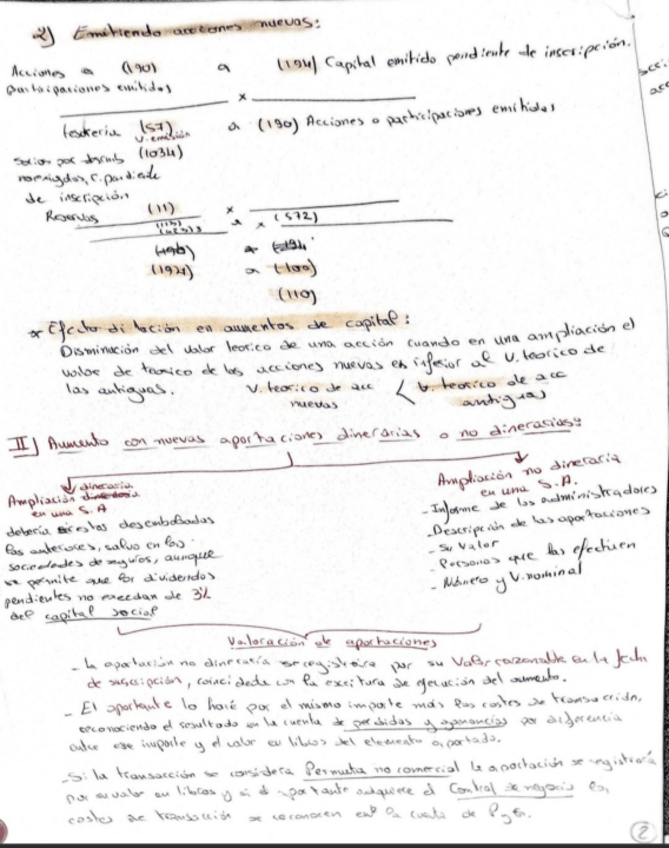 2) Emitiendo acciones nuevas:
Acciones o (190) a (194) Capital emitido pendiente de inscripción.
participaciones emitidas
x
tesorería (57) a (190) Acciones o participaciones emitidas
V. emisión
Socios por desemb (1034)
no exigidos, C. pendiente
de inscripción
Reservas (11) x
(113) a x (572)
(190) a (194
(194) a (100)
(110)
* Efecto dilución en aumentos de capital:
Disminución del valor teorico de una acción cuando en una ampliación el
valor de teorico de las acciones nuevas es inferior al V. teorico de
las antiguas. V. teorico de acc < V. teorico de acc
nuevas antiguas
II) Aumento con nuevas aportaciones dinerarias o no dinerarias:
dineraria
Ampliación
en una S.A
debería estar desembolsadas
las anteriores, salvo en las
sociedades de seguros, aunque
se permite que los dividendos
pendientes no excedan de 3%
del capital social
Ampliación no dineraria
en una S.A.
- Informe de los administradores
- Descripción de las aportaciones
- Su valor
- Personas que las efectúen
- Número y V. nominal
Valoración de aportaciones
- La aportación no dineraria se registrará por su Valor razonable en la fecha
de suscripción, coincidente con la escritura de ejecución del aumento.
- El aportante lo hará por el mismo importe más los costes de transacción,
reconociendo el resultado en la cuenta de perdidas y ganancias por diferencia
entre ese importe y el valor en libros del elemento aportado.
- Si la transacción se considera Permuta no comercial la aportación se registrará
por su valor en libros y si el aportante adquiere el Control de negocio los
costes de transacción se reconocen en la cuenta de PyG.
2